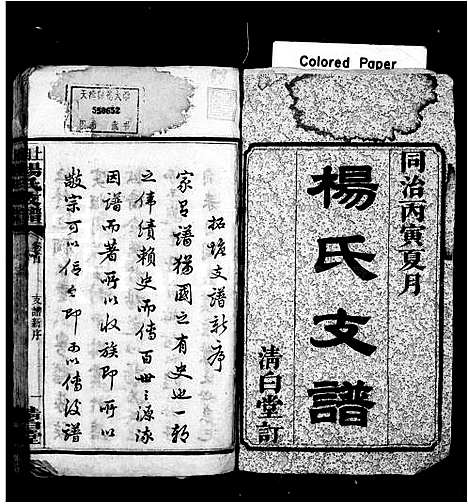 Colored Paper
同治丙寅夏月
楊氏支譜
清白堂訂
拓坡支譜新序
家有譜猶國之有史也一朝
之偉績賴史而傳百世之源流
因譜而著所以收族即所以
敬宗可以信今即可以傳後譜
支譜新序
清白堂
550652